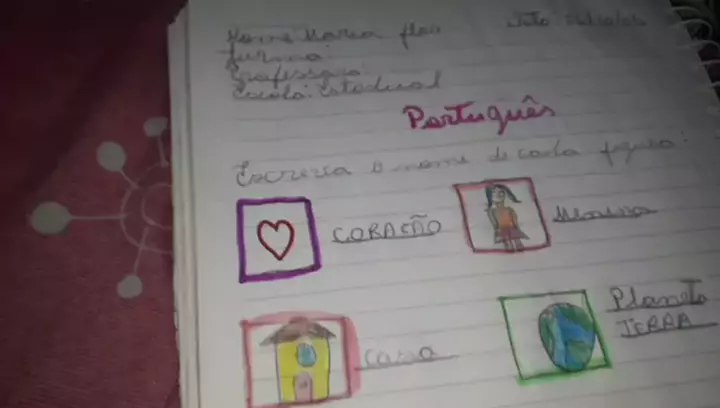 Nome Maria flor
turma:
Professora:
Escola: Estadual
Português
Escreva o nome de cada figura
CORAÇÃO
Menina
Casa
Planeta
TERRA